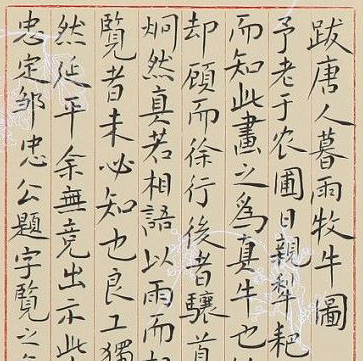 跋唐人暮雨牧牛圖
予老于农圃日親犂耙
而知此畫之爲真牛也
却顾而徐行後者驤首
炯然真若相語以雨而
覽者未必知也良工獨
然延平余無競出示此
忠定邹忠公題字覽之